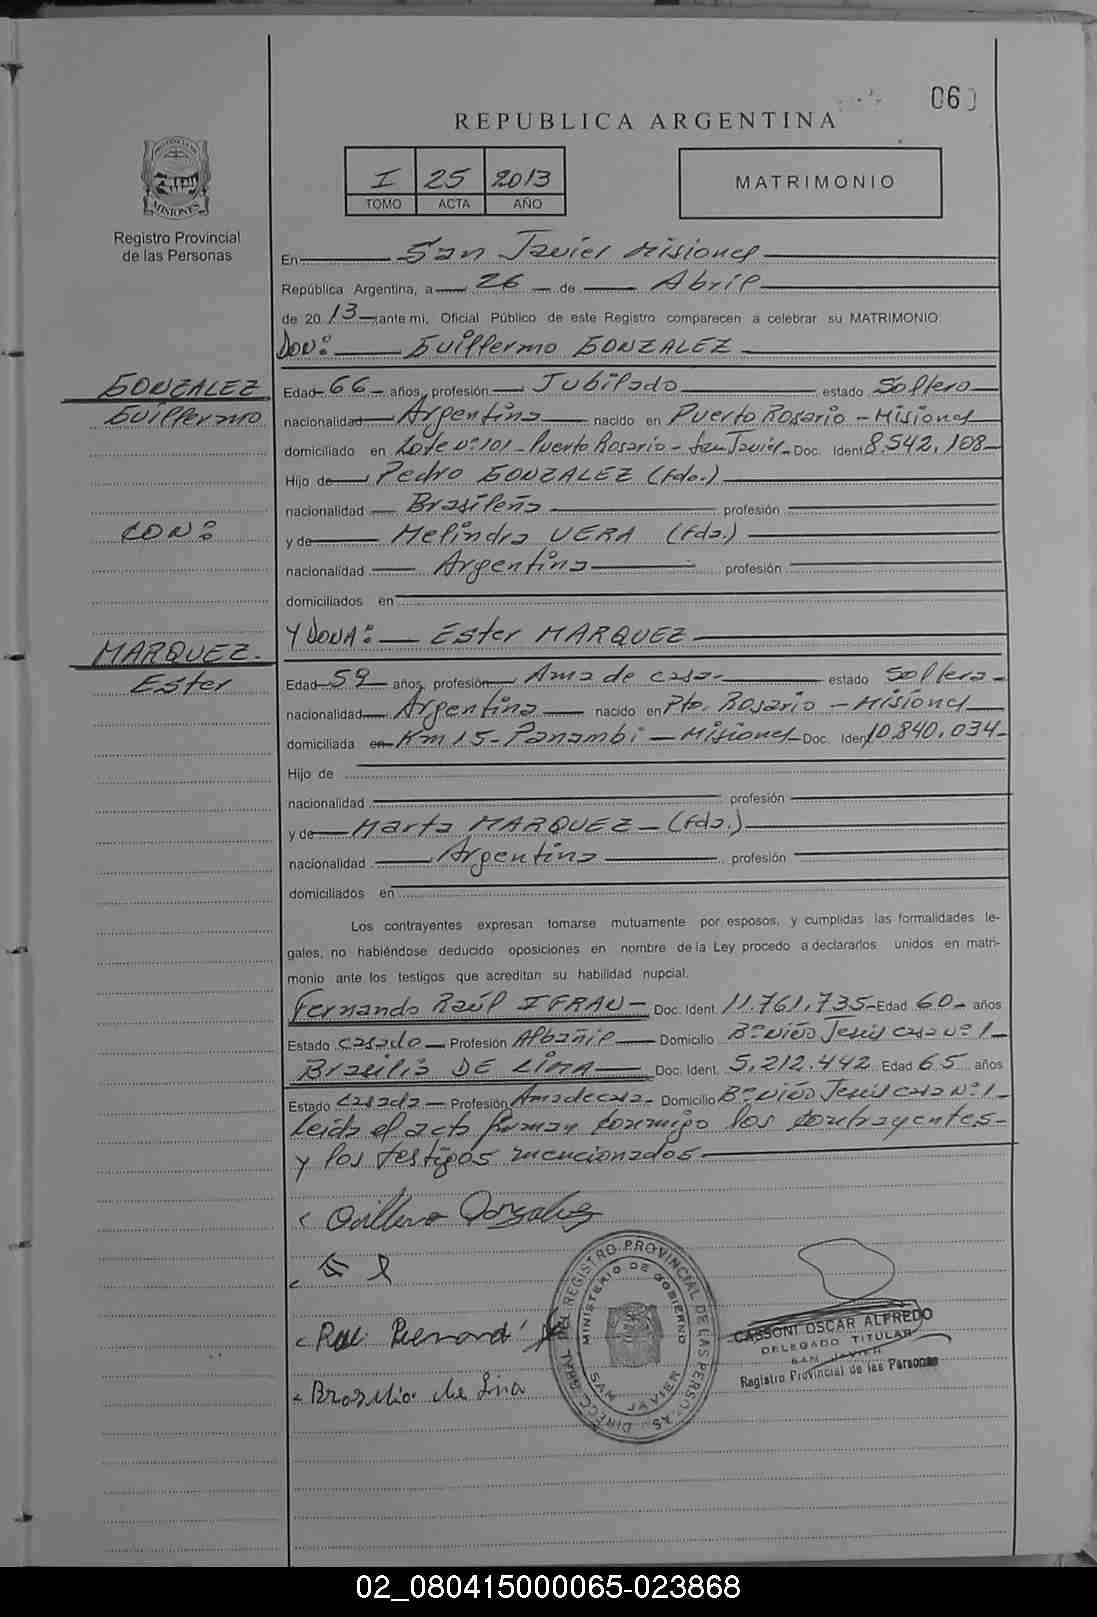 060
REPUBLICA ARGENTINA
PROVINCIA DE
MISIONES
Registro Provincial
de las Personas
I 25 2013
TOMO ACTA AÑO
MATRIMONIO
En San Javier Misiones
República Argentina, a 26 de Abril
de 2013 ante mi, Oficial Público de este Registro comparecen a celebrar su MATRIMONIO
DON: Guillermo GONZALEZ
GONZALEZ
Guillermo
CON:
MARQUEZ.
Ester
Edad 66 años, profesión Jubilado estado Soltero
nacionalidad Argentina nacido en Puerto Rosario - Misiones
domiciliado en Lote Nº 101 - Puerto Rosario - San Javier - Doc. Ident 8.542.108
Hijo de Pedro GONZALEZ (fdo.)
nacionalidad Brasileña profesión
y de Melindra VERA (fda.)
nacionalidad Argentina profesión
domiciliados en
Y DOÑA: Ester MARQUEZ
Edad 59 años, profesión Ama de casa estado Soltera
nacionalidad Argentina nacido en Pto. Rosario - Misiones
domiciliada en Km 15 - Panambi - Misiones Doc. Ident 10.840.034
Hijo de
nacionalidad profesión
y de Marta MARQUEZ - (fda.)
nacionalidad Argentina profesión
domiciliados en
Los contrayentes expresan tomarse mutuamente por esposos, y cumplidas las formalidades le-
gales, no habiéndose deducido oposiciones en nombre de la Ley procedo a declararlos unidos en matri-
monio ante los testigos que acreditan su habilidad nupcial.
Fernando Raúl IFRAN Doc. Ident. 11.761.735 Edad 60 años
Estado casado Profesión Albañil Domicilio Bº Niño Jesús casa nº 1
Brasilia DE LIMA Doc. Ident. 5.212.442 Edad 65 años
Estado casada Profesión Ama de casa Domicilio Bº Niño Jesús casa Nº 1
Leida el acta firman conmigo los contrayentes
y los testigos mencionados
Guillermo Gonzalez
DIRECC. GRAL. DEL REGISTRO PROVINCIAL DE LAS PERSONAS
MINISTERIO DE GOBIERNO
SAN JAVIER
CASSONI OSCAR ALFREDO
DELEGADO TITULAR
SAN JAVIER
Registro Provincial de las Personas
02_080415000065-023868